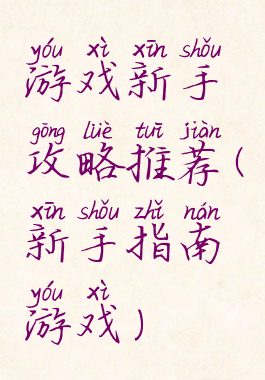 yóu xì xīn shǒu
游戏新手
gōng lüè tuī jiàn
攻略推荐(
xīn shǒu zhǐ nán
新手指南
yóu xì
游戏)